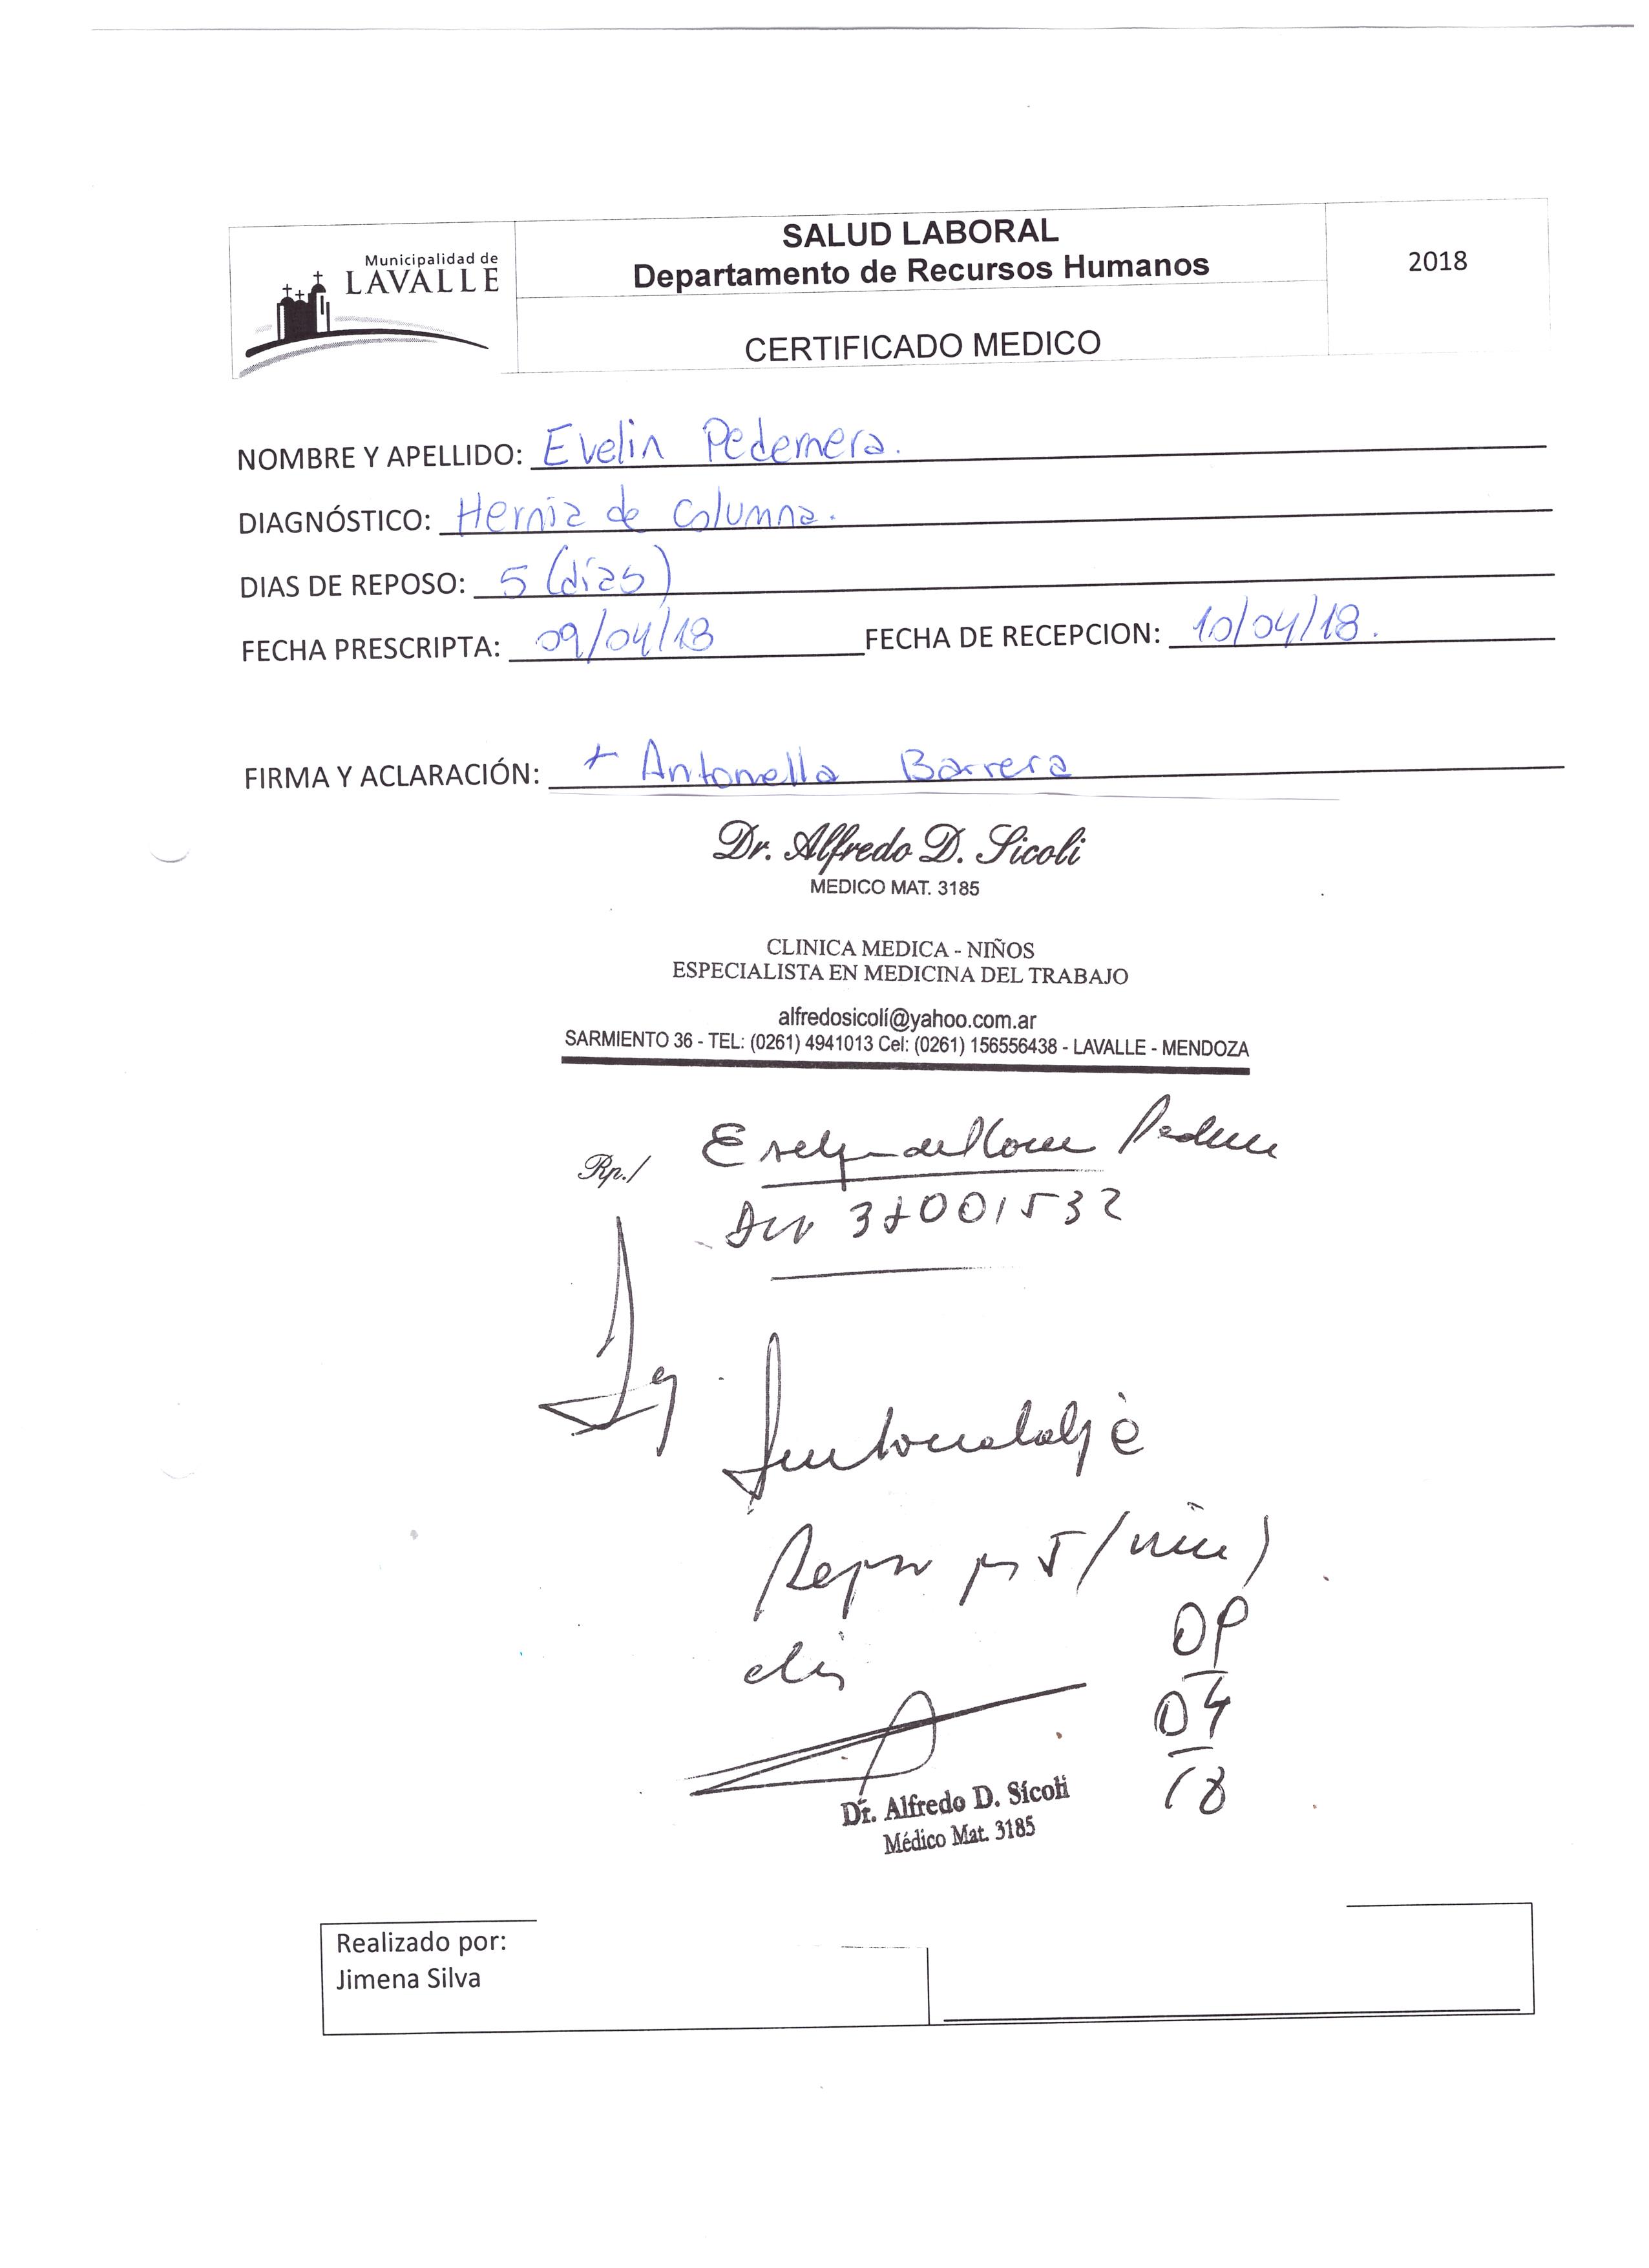 Municipalidad de
LAVALLE
SALUD LABORAL
Departamento de Recursos Humanos
2018
CERTIFICADO MEDICO
NOMBRE Y APELLIDO: Evelin Pedernera.
DIAGNÓSTICO: Hernia de Columna.
DIAS DE REPOSO: 5 (días)
FECHA PRESCRIPTA: 09/04/18 FECHA DE RECEPCION: 10/04/18.
FIRMA Y ACLARACIÓN: + Antonella Barrera
Dr. Alfredo D. Sicoli
MEDICO MAT. 3185
CLINICA MEDICA - NIÑOS
ESPECIALISTA EN MEDICINA DEL TRABAJO
alfredosicoli@yahoo.com.ar
SARMIENTO 36 - TEL: (0261) 4941013 Cel: (0261) 156556438 - LAVALLE - MENDOZA
Rp./
Reposo por 5/
09
04
18
Dr. Alfredo D. Sícoli
Médico Mat. 3185
Realizado por:
Jimena Silva